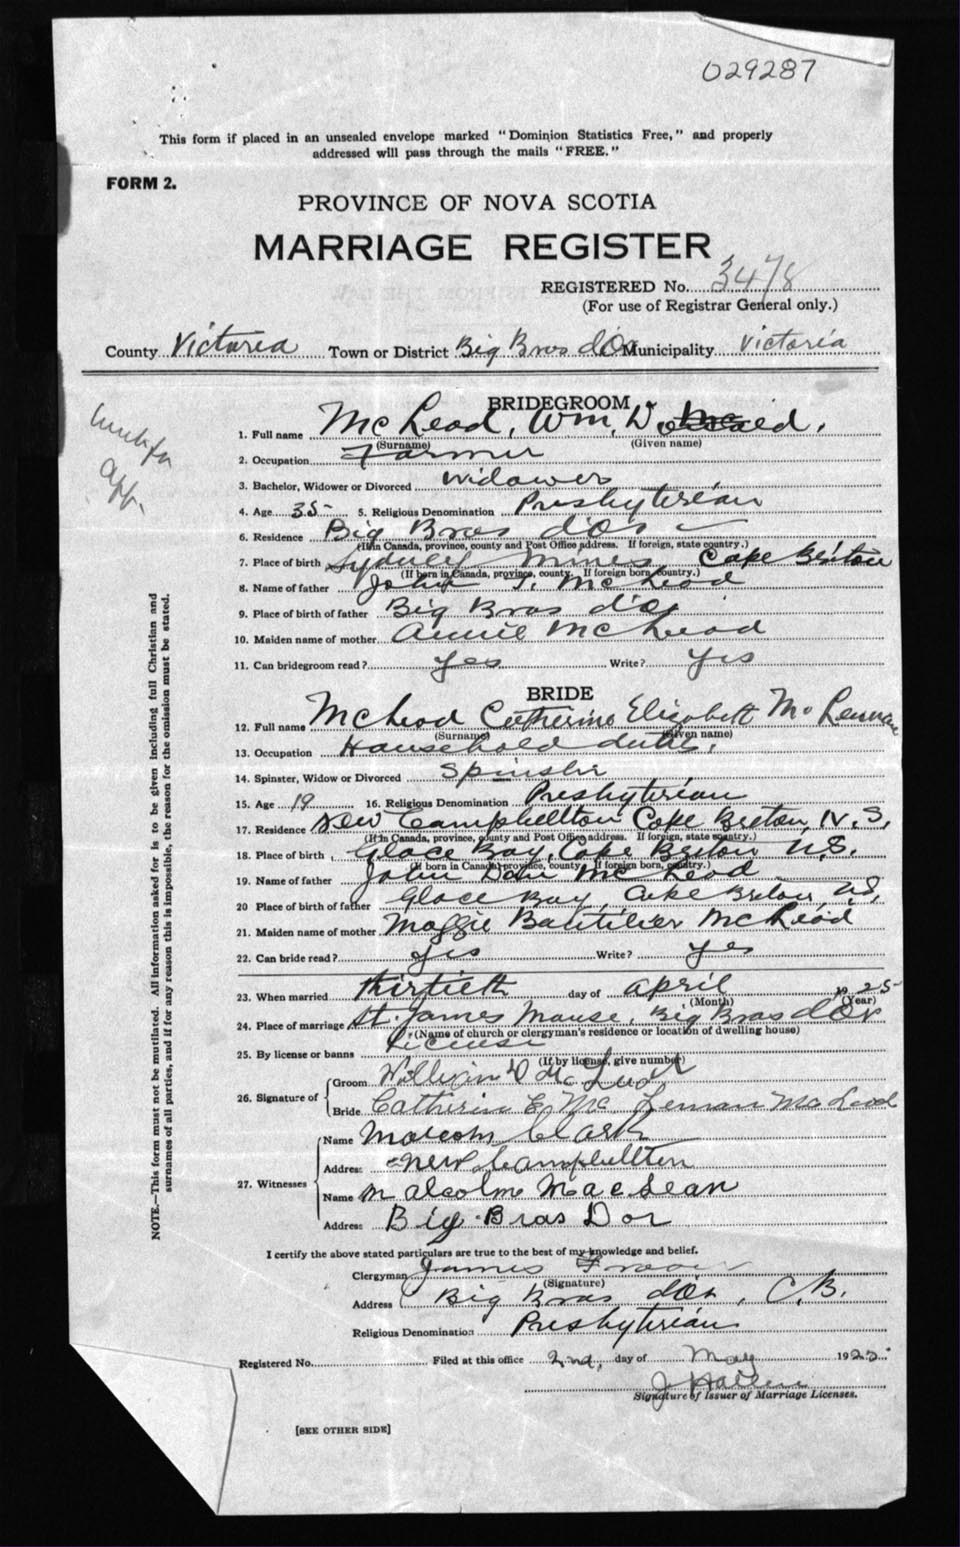 029287
This form if placed in an unsealed envelope marked "Dominion Statistics Free," and properly
addressed will pass through the mails "FREE."
FORM 2.
PROVINCE OF NOVA SCOTIA
MARRIAGE REGISTER
REGISTERED No. 3478
(For use of Registrar General only.)
County Victoria Town or District Big Bras d'Or Municipality Victoria
BRIDEGROOM
1. Full name McLeod, Wm, D
(Surname) (Given name)
2. Occupation Farmer
3. Bachelor, Widower or Divorced widower
4. Age 35 5. Religious Denomination Presbyterian
6. Residence Big Bras d'Or
(If in Canada, province, county and Post Office address. If foreign, state country.)
7. Place of birth Sydney Mines Cape Breton
(If born in Canada, province, county. If foreign born, country.)
8. Name of father John McLeod
9. Place of birth of father Big Bras d'Or
10. Maiden name of mother Annie McLeod
11. Can bridegroom read? yes Write? yes
BRIDE
12. Full name McLeod Catherine Elizabeth McLennan
(Surname) (Given name)
13. Occupation Household duties.
14. Spinster, Widow or Divorced Spinster
15. Age 19 16. Religious Denomination Presbyterian
17. Residence New Campbellton Cape Breton, N.S,
(If in Canada, province, county and Post Office address. If foreign, state country.)
18. Place of birth Glace Bay, Cape Breton N.S.
(If born in Canada, province, county. If foreign born, country.)
19. Name of father John Dan McLeod
20 Place of birth of father Glace Bay, Cape Breton N.S,
21. Maiden name of mother Maggie Boutilier McLeod
22. Can bride read? yes Write? yes
23. When married thirtieth day of April 1925
(Month) (Year)
24. Place of marriage St. James Manse, Big Bras d'Or
(Name of church or clergyman's residence or location of dwelling house)
25. By license or banns License
(If by license, give number)
26. Signature of Groom William D McLeod
Bride Catherin E. McLennan McLeod
27. Witnesses Name Malcolm Clark
Address New Campbellton
Name Malcolm MacLean
Address Big Bras Dor
I certify the above stated particulars are true to the best of my knowledge and belief.
Clergyman James
(Signature)
Address Big Bras d'Or, C.B.
Religious Denomination Presbyterian
Registered No. Filed at this office 2nd, day of May 1925
Signature of Issuer of Marriage Licenses.
[SEE OTHER SIDE]
NOTE.—This form must not be mutilated. All information asked for is to be given including full Christian and
surnames of all parties, and if for any reason this is impossible, the reason for the omission must be stated.